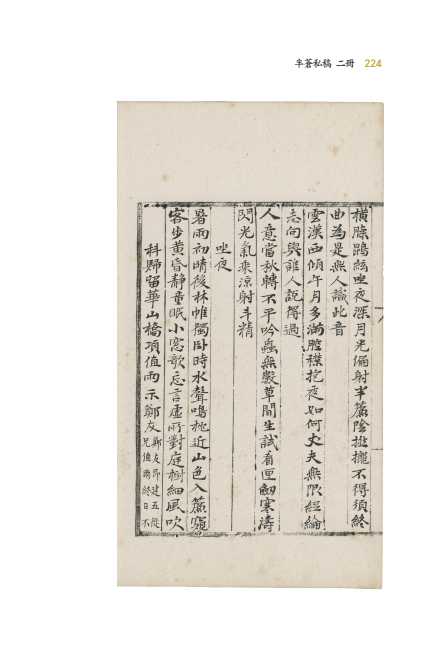 半蒼私稿 二冊 224
橫膝鵾絃坐夜深月光偏射半簾陰推攏不得須終
曲為是無人識此音
雲漢西傾午月多滿腔襟抱夜如何丈夫無限經綸
志向與誰人說得過
人意當秋轉不平吟蟲無數草間生試看匣劒寒濤
閃光氣乘涼射斗精
坐夜
暑雨初晴後林帷獨卧時水聲鳴枕近山色入簾窺
客步黃昏靜童眠小窓歌忘言虛所對庭樹細風吹
科歸留華山橋項值雨示鄭友
鄭友昂建五從
兄值雨終日不